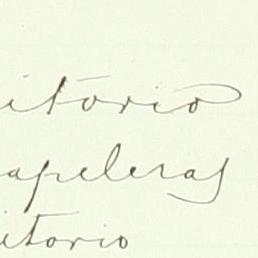 itorio
apeleras
itorio